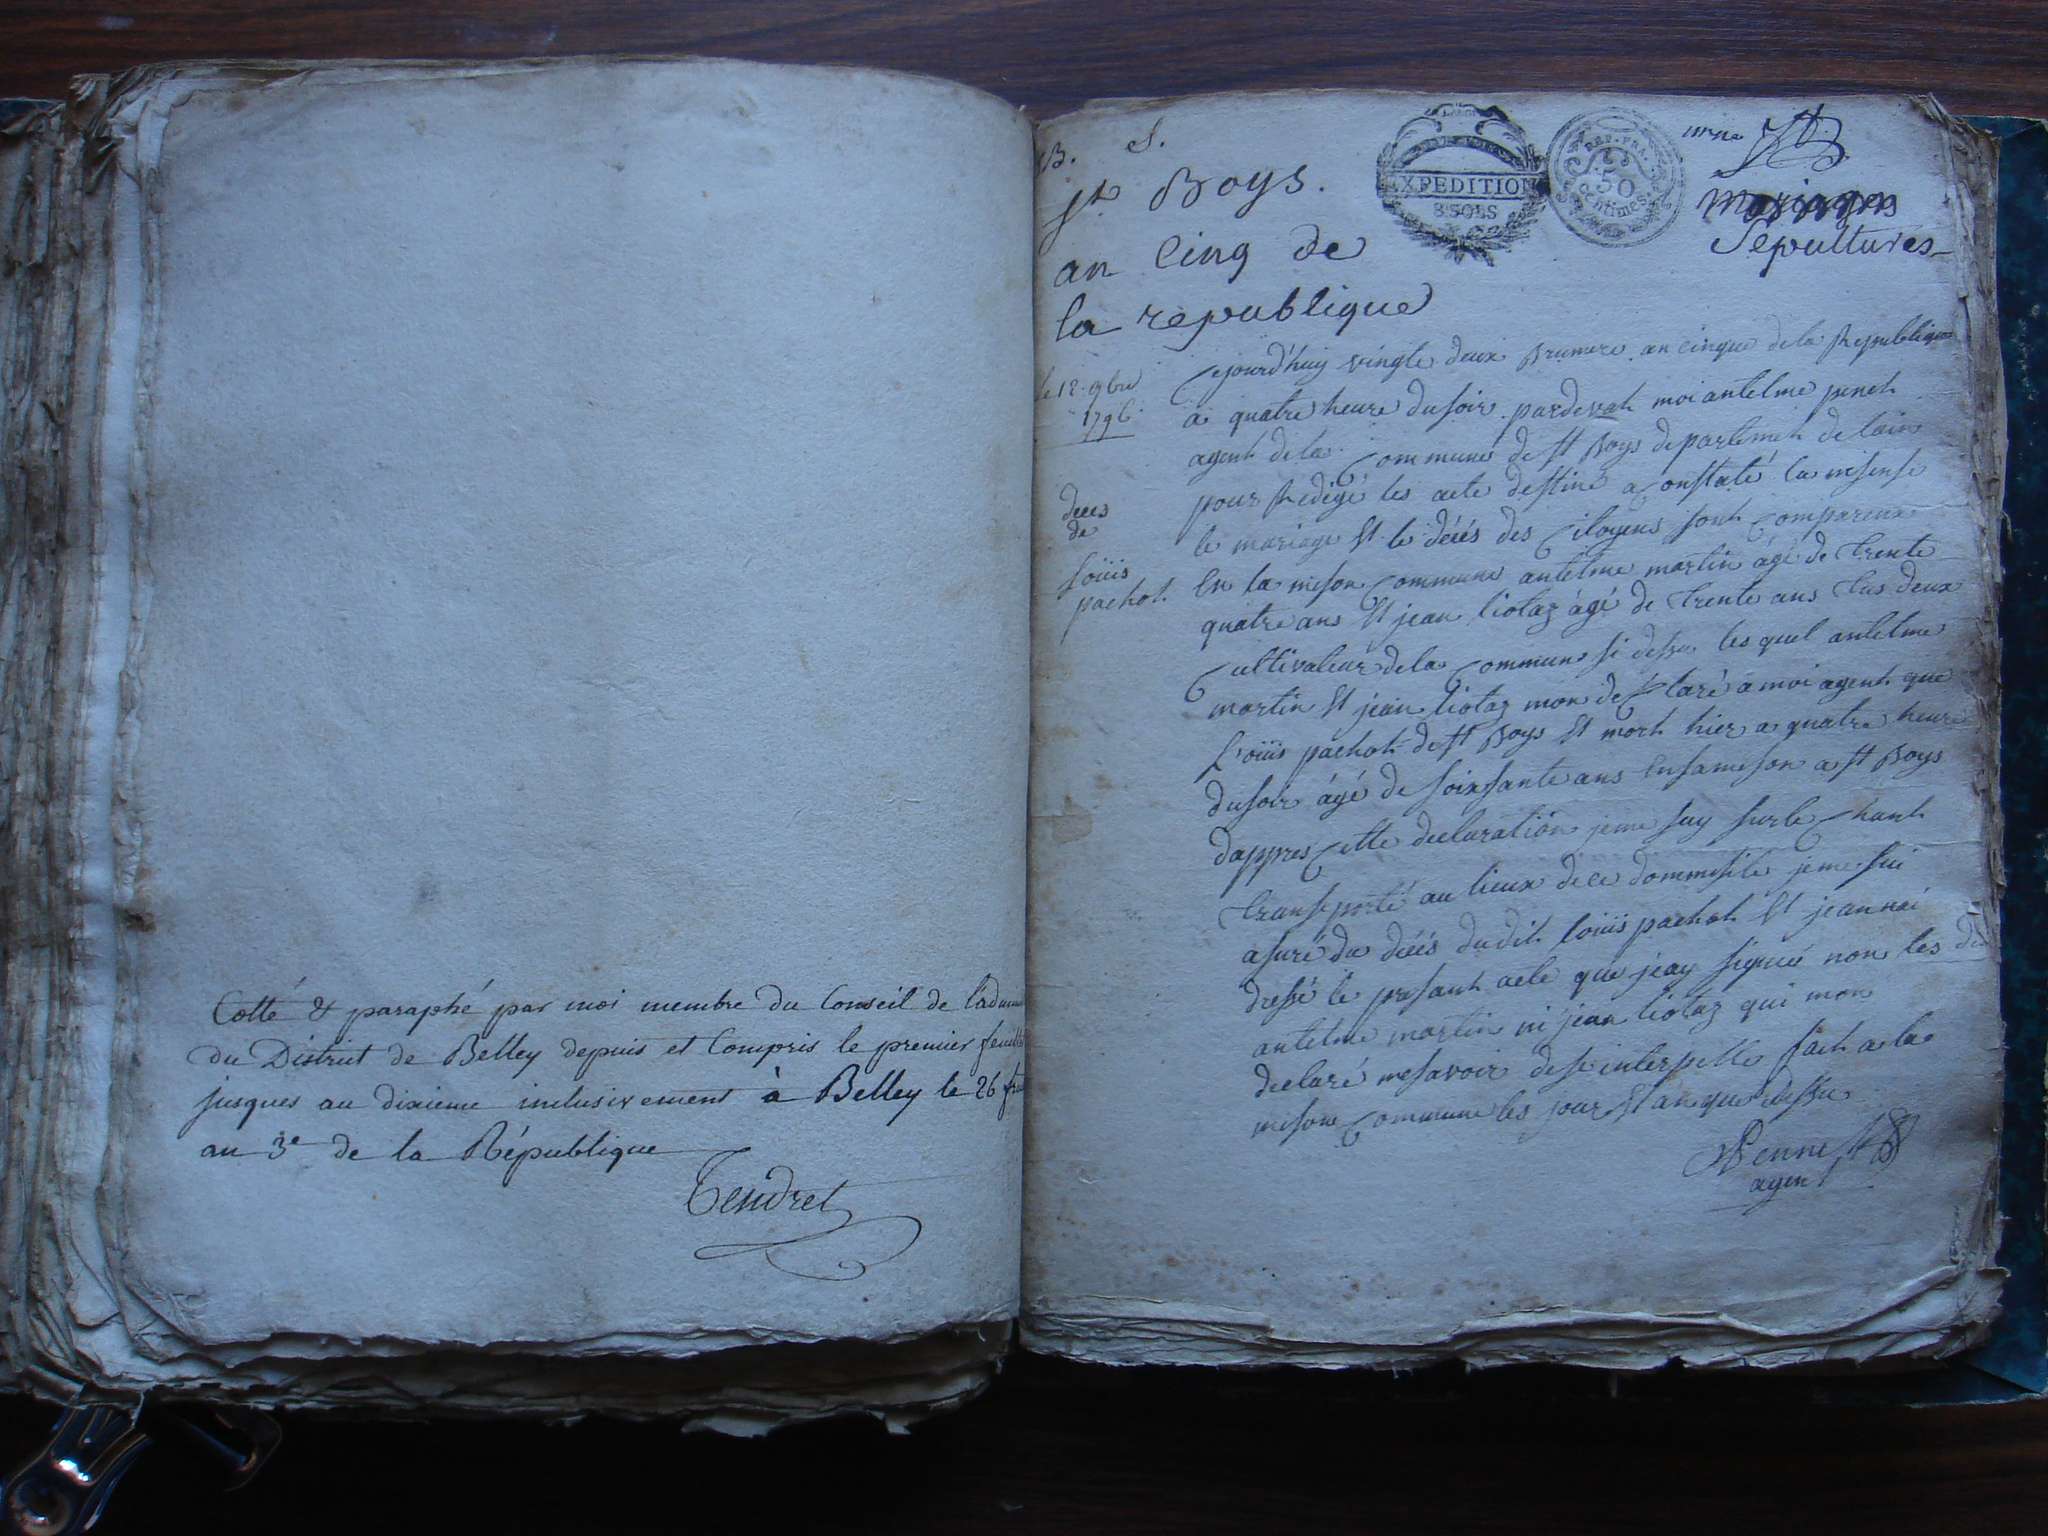 Cotté & paraphé par moi membre du Conseil de l'admin
du District de Belley depuis et Compris le premier feuillet
jusques au dixieme inclusivement à Belley le 26
an 3e de la République
Tendret
B. S.
St Boys.
an Cinq de
la republique
EXPEDITION
8 SOLS
REP. FRA.
50
Centimes
mariages
Sepultures
le 12 9bre
1796
deces
de
loüis
pachot.
Cejourd'huy vingte deux Brumere an cinque de la Republique
a quatre heure du soir pardevat moi antelme
agent de la Commune de st Boys departemet de lain
pour Redigé les acte destiné a Constaté la nesense
le mariage Et le décés des Citoyens sont Compareux
En la meson Commune antelme martin âgé de trente
quatre ans Et jean liotaz âgé de trente ans tus deux
Cultivateur de la Commune si dessu les quel antelme
martin Et jean liotaz mon desclaré a moi agent que
Loüis pachot de st Boys Et mort hier a quatre heure
du soir âgé de soixsante ans En sa meson a st Boys
dappres Cette declaration je me suy sur le Chant
transporté au lieux de ce dommisile je me sui
asuré du décés dudit loüis pachot Et jean nai
dressé le presant acte que jeay signié non les dit
antelme martin ni jean liotaz qui mon
declaré nesavoir de se interpellé fait a la
meson Commune les jour Et an que dessu
Pennet
agent